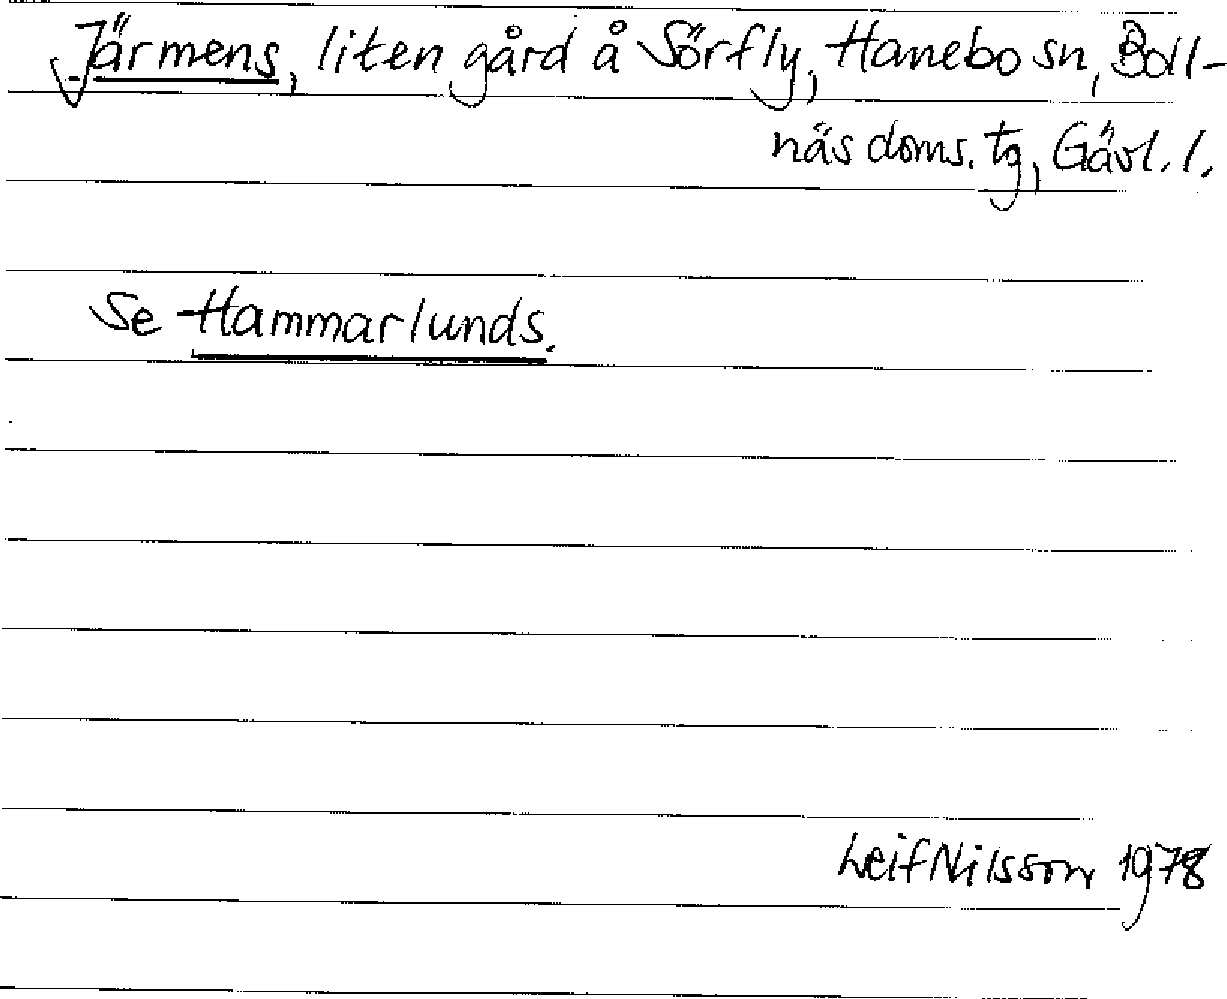 Järmens, liten gård å Sörfly, Hanebo sn, Boll-
näs doms. tg, Gävl. l.
Se Hammarlunds.
Leif Nilsson 1978